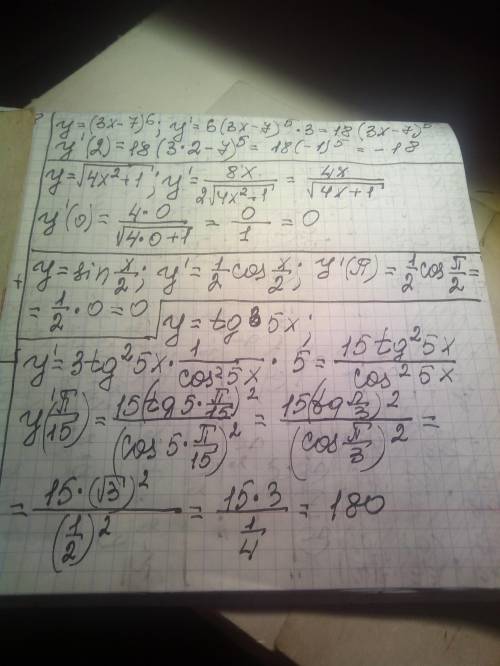 y=(3x-7)⁶; y'=6(3x-7)⁵·3=18(3x-7)⁵
y'(2)=18(3·2-7)⁵=18(-1)⁵=-18
y=√(4x²+1); y'=8x/(2√(4x²+1))=4x/√(4x+1)
y'(0)=4·0/√(4·0+1)=0/1=0
y=sin x/2; y'=1/2 cos x/2; y'(π)=1/2 cos π/2=
=1/2·0=0
y=tg³5x;
y'=3tg²5x·1/cos²5x·5=15tg²5x/cos²5x
y'(π/15)=15(tg5·π/15)²/(cos5·π/15)²=15(tg π/3)²/(cos π/3)²=
=15·(√3)²/(1/2)²=15·3/(1/4)=180